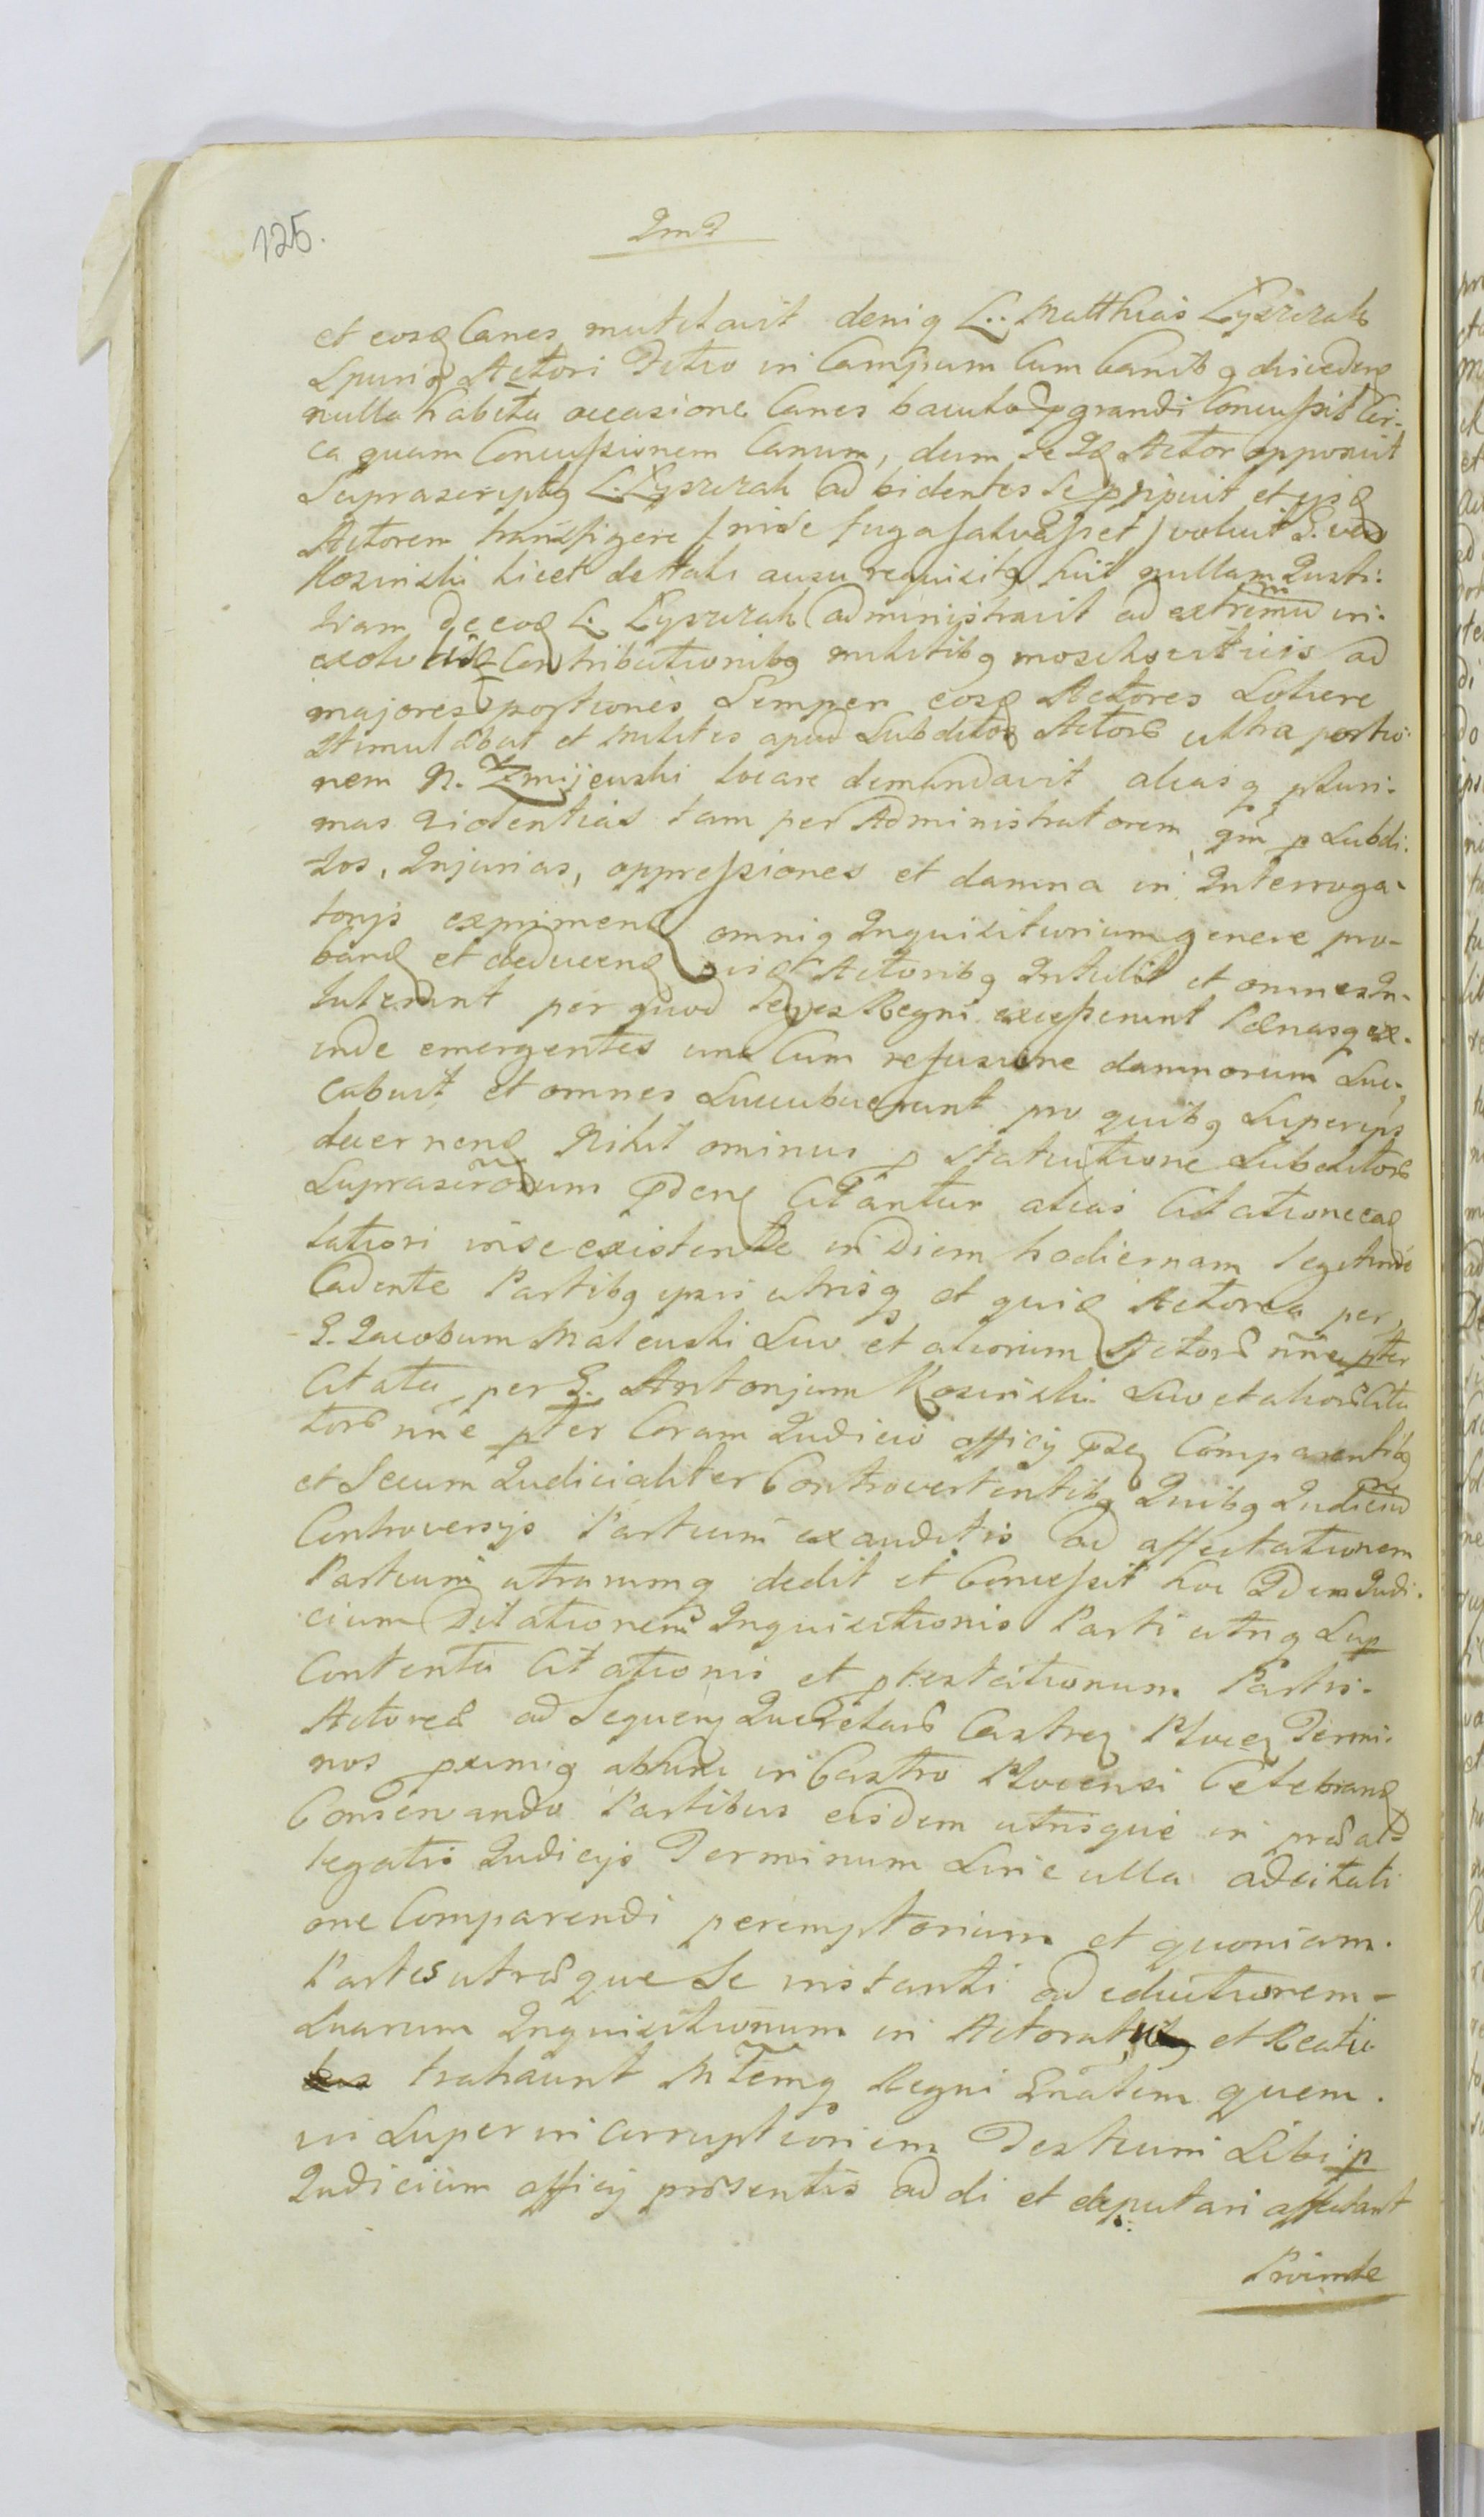 125.
et eosd Canes mutilavit deniq L. Matthias Lyszczak
Actori Petro in Campum Cum Canib q
nulla habita occasione Canes baculo pgrandi Concussit Cir-
ca quam Concussionem Canum, dum Se Actor opposuit
Suprascriptq L. Lyszczak ad bidentes Se pripuit et
Actorem transfigere nisi fuga salvasset voluit G. vero
Kosinski licet de tali ausu requisitq fuit nullam Justi-
tiam de eod L. Lyszczak administravit ad extremu in
Contributionibq militibq ad
majores portiones Semper eosd Actores Solvere
stimulabat et milites apud Subditos Actor ultra portio-
nem N. Zmijewski locare demandavit aliasq pluri-
mas violentias tam per Administratorem qm p Subdi-
tos, Injurias, oppressiones et damna in Interroga-
torijs exprimend omniq Inquisitorium genere pro-
band et deducend iisd Actoribq Intulit et omnes In-
tulerunt per quod leges Regni excesserunt Paenasq ex-
inde emergentes una Cum refusione damnorum Suc-
cubuit et omnes Succubuerunt pro quibq Superips
decernend Nihil ominus p Statuitione Subditor
Suprascrorum Citantur alias Citatione ead
latiori in se existente in Diem hodiernam legitime
Cadente Partibq ipsis utrisq et quid Actorea per
G. Jacobum Malewski Suo et aliorum Actor nne pter
Citata per G. Antonjum Kosinski Suo et alior Cita
tor nne pter Coram Judicio officij Comparentibq
et Secum Judicialiter Controvertentibq Quibq Judiciu
Controversijs Partium exauditis ad affectationem
Partium utrarumq dedit et Concessit hoc Idem Judi-
cium Dilationem Inquisitionis Parti utriq Sup
Contenta Citationis et ptestationum Partis
Actorea ad Sequen Querelar Castren Plocen Termi-
nos pximiq abhinc in Castro Plocensi Celebrand
Conservando Partibus eisdem utrisque in
legatis Judicijs Terminum Sine ulla adcitati
one Comparendi peremptorium et quoniam
Partes utraeque Se instanti ad eductionem
Suarum Inquisitionum in Actoratu et Reatu
trahaunt Regni Gnalem quem
in Super in Corruptionem Testium Sibi p
Judicium officij praesentis addi et deputari affectant
Proinde